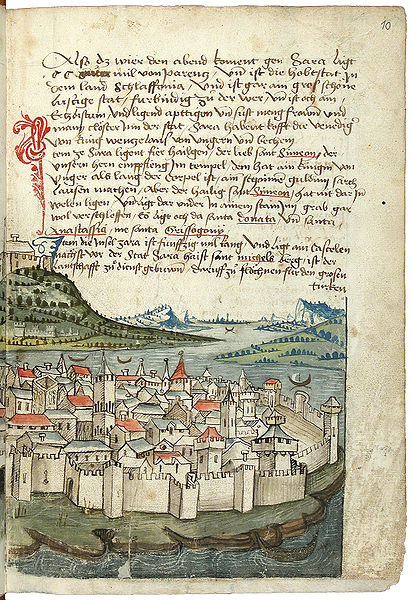 10
Also dz wier den abend koment gen Zara ligt
mil von parentz Vn ist die hobtstat In
dem land Schlaffonia, Vnd ist gar ain gros schöne
stat, zu der wer, vn ist och ain
Vnd ligend Vn sust meng frowen vnd
man closter In der stat, Zara habent kofft die venediger
von küng wenzelaus von ungern vnd bechem
ze Zara ligent fier hailgen, der lieb sant Simeon, der
unsern hern empfieng Im tempel, dem hat ain küngin von
Unger als lang der Corpel ist, ain guldin sarch
lausen machen, Aber der hailig sant Simeon hat nit dar In
welen ligen Vn ligt dar under In ainem stain In grab gar
wol verschlossen, Es ligt och da santa Donata Vn santa
Anastassia, me santa Grisogony
die Insel Zara ist funffzig mil lang Vnd ligt ain Castelen
der Stat Zara haist sant michels berg, ist der
lantschafft zu dienst gebuwen, daruff zu flöchnen für den grosen
turken